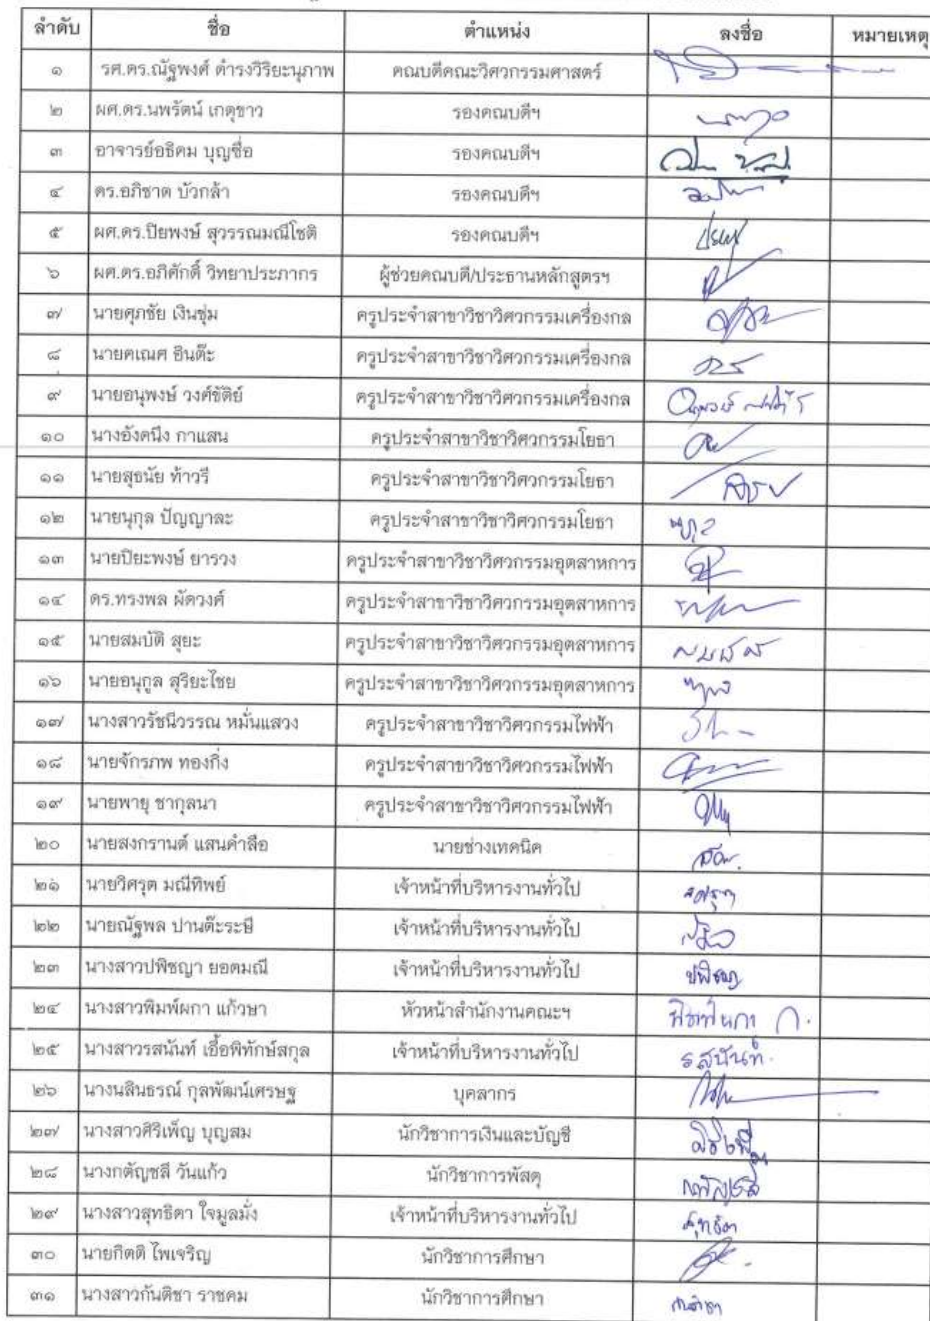 ลำดับ ชื่อ ตำแหน่ง ลงชื่อ หมายเหตุ
๑ รศ.ดร.ณัฐพงศ์ ดำรงวิริยะนุภาพ คณบดีคณะวิศวกรรมศาสตร์
๒ ผศ.ดร.นพรัตน์ เกตุขาว รองคณบดีฯ
๓ อาจารย์อธิคม บุญซื่อ รองคณบดีฯ
๔ ดร.อภิชาต บัวกล้า รองคณบดีฯ
๕ ผศ.ดร.ปิยพงษ์ สุวรรณมณีโชติ รองคณบดีฯ
๖ ผศ.ดร.อภิศักดิ์ วิทยาประภากร ผู้ช่วยคณบดี/ประธานหลักสูตรฯ
๗ นายศุภชัย เงินชุ่ม ครูประจำสาขาวิชาวิศวกรรมเครื่องกล
๘ นายคเณศ อินต๊ะ ครูประจำสาขาวิชาวิศวกรรมเครื่องกล
๙ นายอนุพงษ์ วงศ์ขัติย์ ครูประจำสาขาวิชาวิศวกรรมเครื่องกล
๑๐ นางอังคนึง กาแสน ครูประจำสาขาวิชาวิศวกรรมโยธา
๑๑ นายสุธนัย ท้าวรี ครูประจำสาขาวิชาวิศวกรรมโยธา
๑๒ นายนุกุล ปัญญาละ ครูประจำสาขาวิชาวิศวกรรมโยธา
๑๓ นายปิยะพงษ์ ยารวง ครูประจำสาขาวิชาวิศวกรรมอุตสาหการ
๑๔ ดร.ทรงพล ผัดวงศ์ ครูประจำสาขาวิชาวิศวกรรมอุตสาหการ
๑๕ นายสมบัติ สุยะ ครูประจำสาขาวิชาวิศวกรรมอุตสาหการ
๑๖ นายอนุกูล สุริยะไชย ครูประจำสาขาวิชาวิศวกรรมอุตสาหการ
๑๗ นางสาวรัชนีวรรณ หมั่นแสวง ครูประจำสาขาวิชาวิศวกรรมไฟฟ้า
๑๘ นายจักรภพ ทองกิ่ง ครูประจำสาขาวิชาวิศวกรรมไฟฟ้า
๑๙ นายพายุ ชากุลนา ครูประจำสาขาวิชาวิศวกรรมไฟฟ้า
๒๐ นายสงกรานต์ แสนคำลือ นายช่างเทคนิค
๒๑ นายวิศรุต มณีทิพย์ เจ้าหน้าที่บริหารงานทั่วไป
๒๒ นายณัฐพล ปานต๊ะระษี เจ้าหน้าที่บริหารงานทั่วไป
๒๓ นางสาวปพิชญา ยอดมณี เจ้าหน้าที่บริหารงานทั่วไป ปพิชญา
๒๔ นางสาวพิมพ์ผกา แก้วษา หัวหน้าสำนักงานคณะฯ
๒๕ นางสาวรสนันท์ เอื้อพิทักษ์สกุล เจ้าหน้าที่บริหารงานทั่วไป รสนันท์
๒๖ นางนลินธรณ์ กุลพัฒน์เศรษฐ บุคลากร
๒๗ นางสาวศิริเพ็ญ บุญสม นักวิชาการเงินและบัญชี
๒๘ นางกตัญชลี วันแก้ว นักวิชาการพัสดุ
๒๙ นางสาวสุทธิดา ใจมูลมั่ง เจ้าหน้าที่บริหารงานทั่วไป สุทธิดา
๓๐ นายกิตติ ไพเจริญ นักวิชาการศึกษา
๓๑ นางสาวกันติชา ราชคม นักวิชาการศึกษา